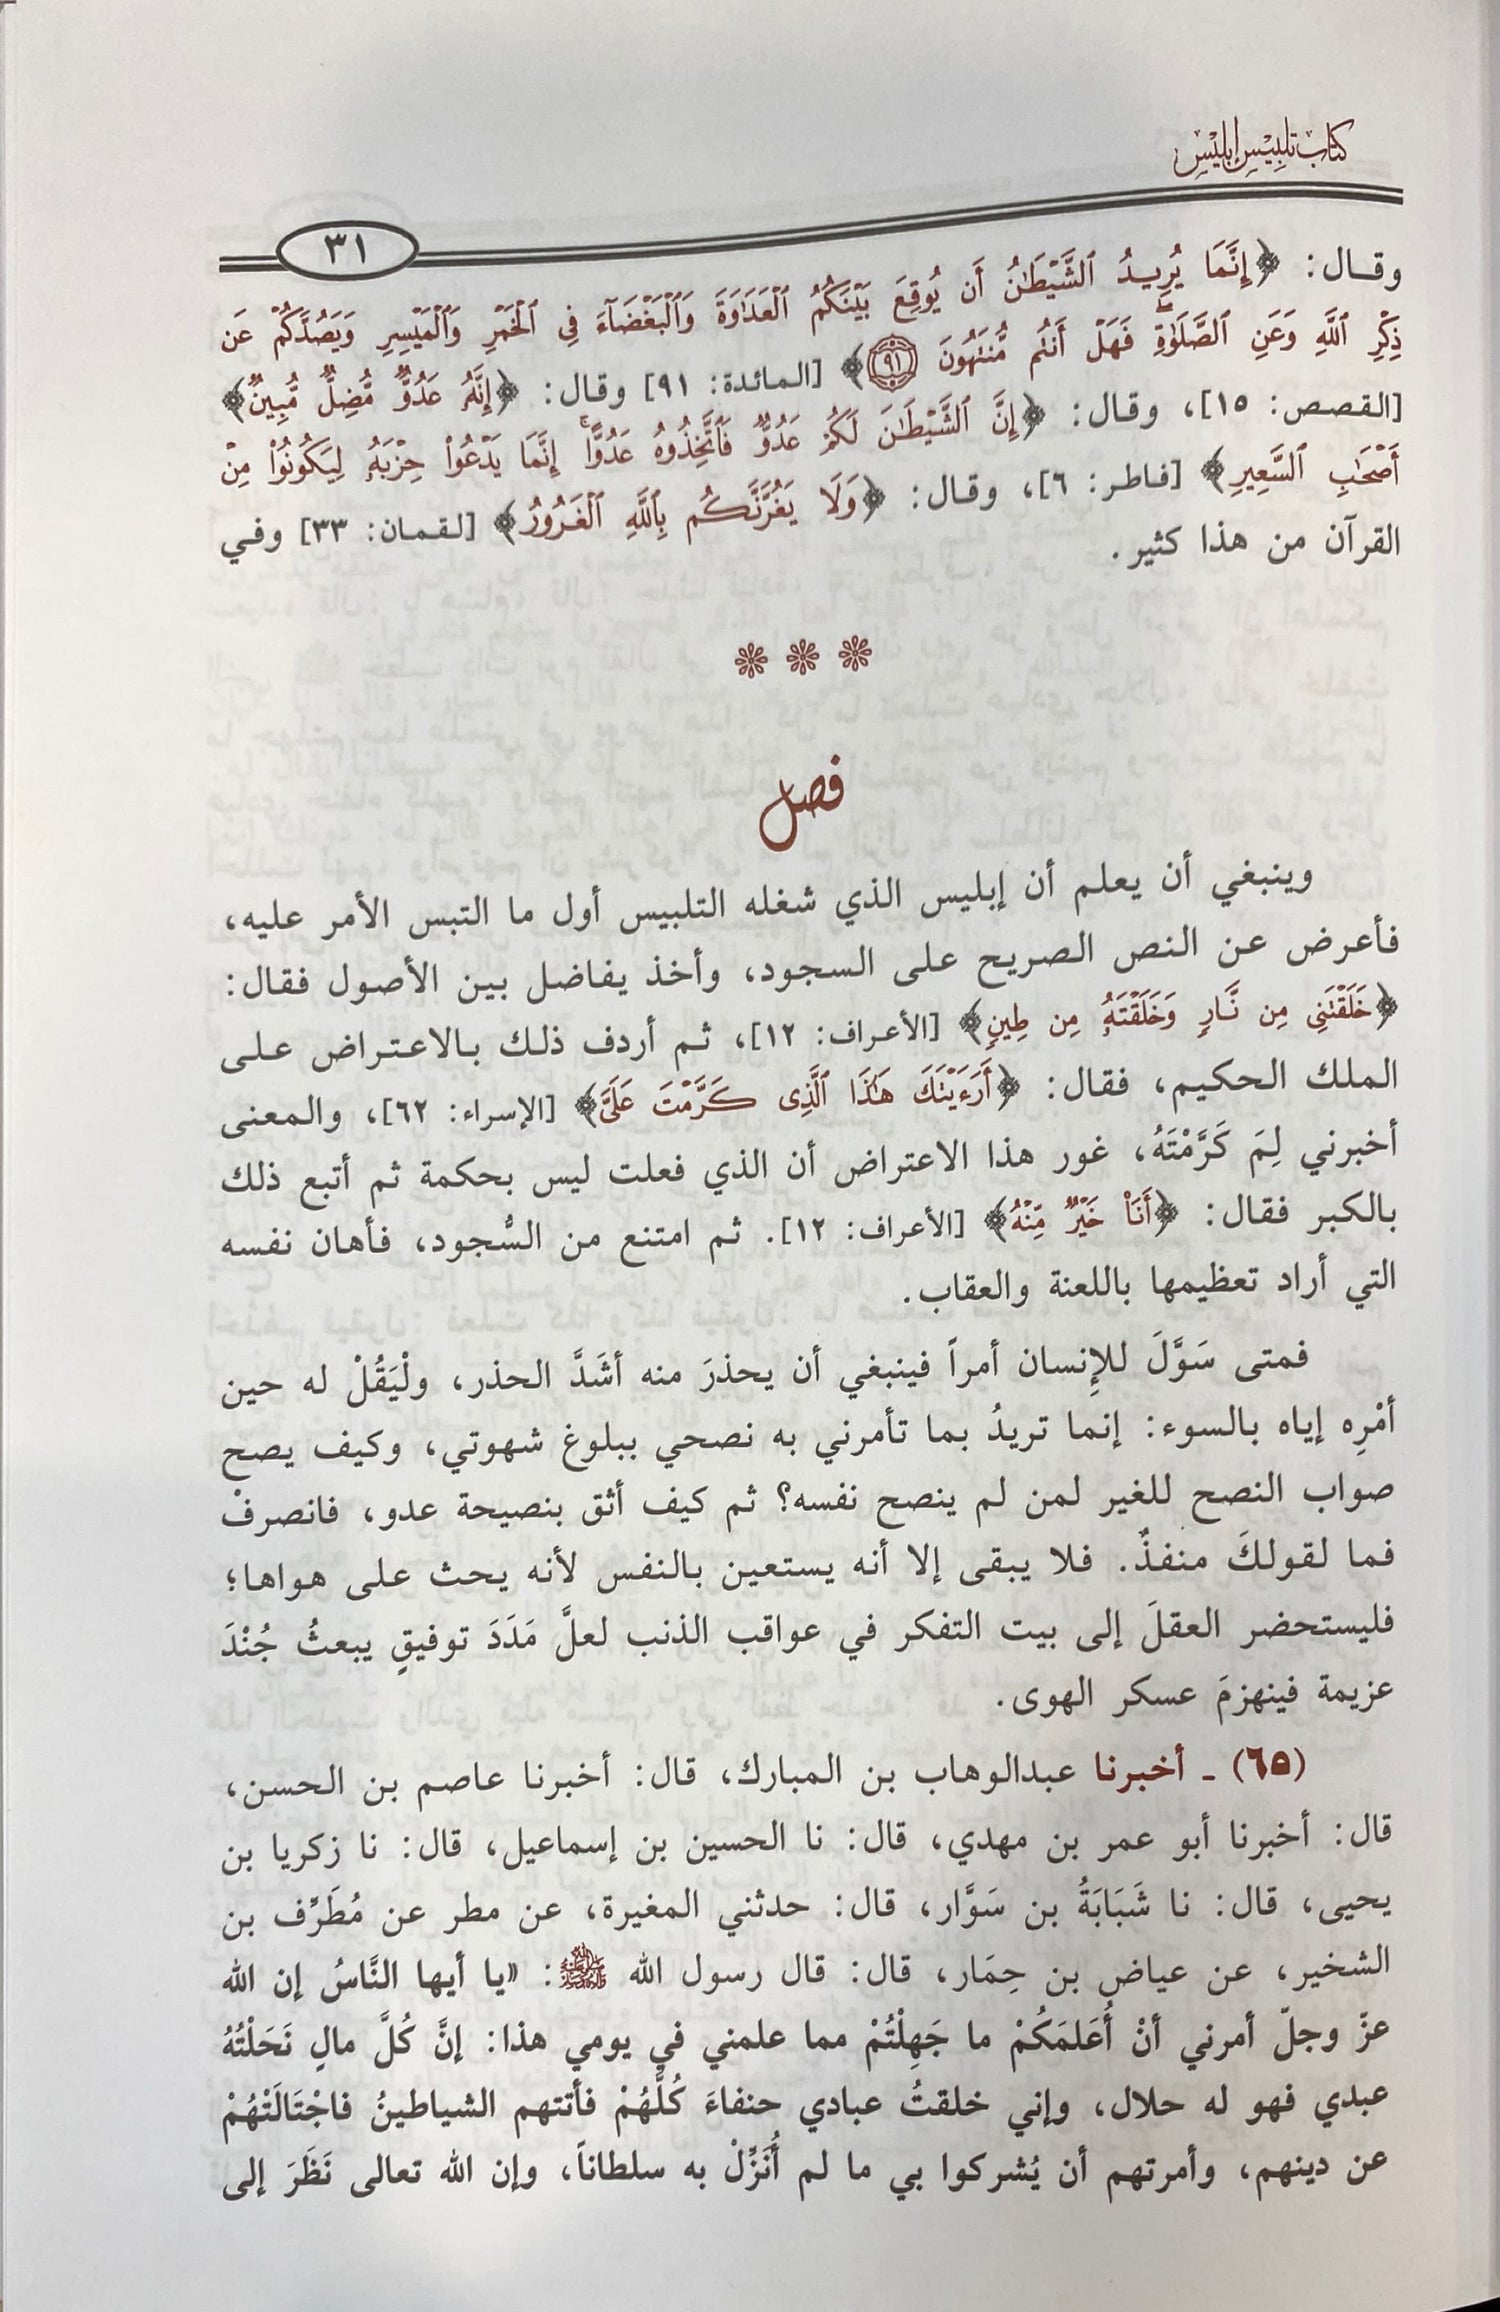 كتاب تلبيس إبليس
٣١
وقال: ﴿إِنَّمَا يُرِيدُ ٱلشَّيْطَٰنُ أَن يُوقِعَ بَيْنَكُمُ ٱلْعَدَٰوَةَ وَٱلْبَغْضَآءَ فِى ٱلْخَمْرِ وَٱلْمَيْسِرِ وَيَصُدَّكُمْ عَن
ذِكْرِ ٱللَّهِ وَعَنِ ٱلصَّلَوٰةِ ۖ فَهَلْ أَنتُم مُّنتَهُونَ ٩١﴾ [المائدة: ٩١] وقال: ﴿إِنَّهُۥ عَدُوٌّ مُّضِلٌّ مُّبِينٌ﴾
[القصص: ١٥]، وقال: ﴿إِنَّ ٱلشَّيْطَٰنَ لَكُمْ عَدُوٌّ فَٱتَّخِذُوهُ عَدُوًّا ۚ إِنَّمَا يَدْعُوا۟ حِزْبَهُۥ لِيَكُونُوا۟ مِنْ
أَصْحَٰبِ ٱلسَّعِيرِ﴾ [فاطر: ٦]، وقال: ﴿وَلَا يَغُرَّنَّكُم بِٱللَّهِ ٱلْغَرُورُ﴾ [لقمان: ٣٣] وفي
القرآن من هذا كثير.
فصل
وينبغي أن يعلم أن إبليس الذي شغله التلبيس أول ما التبس الأمر عليه،
فأعرض عن النص الصريح على السجود، وأخذ يفاضل بين الأصول فقال:
﴿خَلَقْتَنِى مِن نَّارٍ وَخَلَقْتَهُۥ مِن طِينٍ﴾ [الأعراف: ١٢]، ثم أردف ذلك بالاعتراض على
الملك الحكيم، فقال: ﴿أَرَءَيْتَكَ هَٰذَا ٱلَّذِى كَرَّمْتَ عَلَىَّ﴾ [الإسراء: ٦٢]، والمعنى
أخبرني لِمَ كَرَّمْتَهُ، غور هذا الاعتراض أن الذي فعلت ليس بحكمة ثم أتبع ذلك
بالكبر فقال: ﴿أَنَا۠ خَيْرٌ مِّنْهُ﴾ [الأعراف: ١٢]. ثم امتنع من السُّجود، فأهان نفسه
التي أراد تعظيمها باللعنة والعقاب.
فمتى سَوَّلَ للإنسان أمراً فينبغي أن يحذرَ منه أشَدَّ الحذر، ولْيَقُلْ له حين
أمْرِه إياه بالسوء: إنما تريدُ بما تأمرني به نصحي ببلوغ شهوتي، وكيف يصح
صواب النصح للغير لمن لم ينصح نفسه؟ ثم كيف أثق بنصيحة عدو، فانصرفْ
فما لقولكَ منفذٌ. فلا يبقى إلا أنه يستعين بالنفس لأنه يحث على هواها؛
فليستحضر العقلَ إلى بيت التفكر في عواقب الذنب لعلَّ مَدَدَ توفيقٍ يبعثُ جُنْدَ
عزيمة فينهزمَ عسكر الهوى.
(٦٥) ـ أخبرنا عبدالوهاب بن المبارك، قال: أخبرنا عاصم بن الحسن،
قال: أخبرنا أبو عمر بن مهدي، قال: نا الحسين بن إسماعيل، قال: نا زكريا بن
يحيى، قال: نا شَبَابَةُ بن سَوَّار، قال: حدثني المغيرة، عن مطر عن مُطَرِّف بن
الشخير، عن عياض بن حِمَار، قال: قال رسول الله ﷺ: «يا أيها النَّاسُ إن الله
عزّ وجلّ أمرني أنْ أُعَلمَكُمْ ما جَهِلْتُمْ مما علمني في يومي هذا: إنَّ كُلَّ مالٍ نَحَلْتُهُ
عبدي فهو له حلال، وإني خلقتُ عبادي حنفاءَ كُلَّهُمْ فأتتهم الشياطينُ فاجْتَالَتْهُمْ
عن دينهم، وأمرتهم أن يُشركوا بي ما لم أُنَزِّلْ به سلطاناً، وإن الله تعالى نَظَرَ إلى